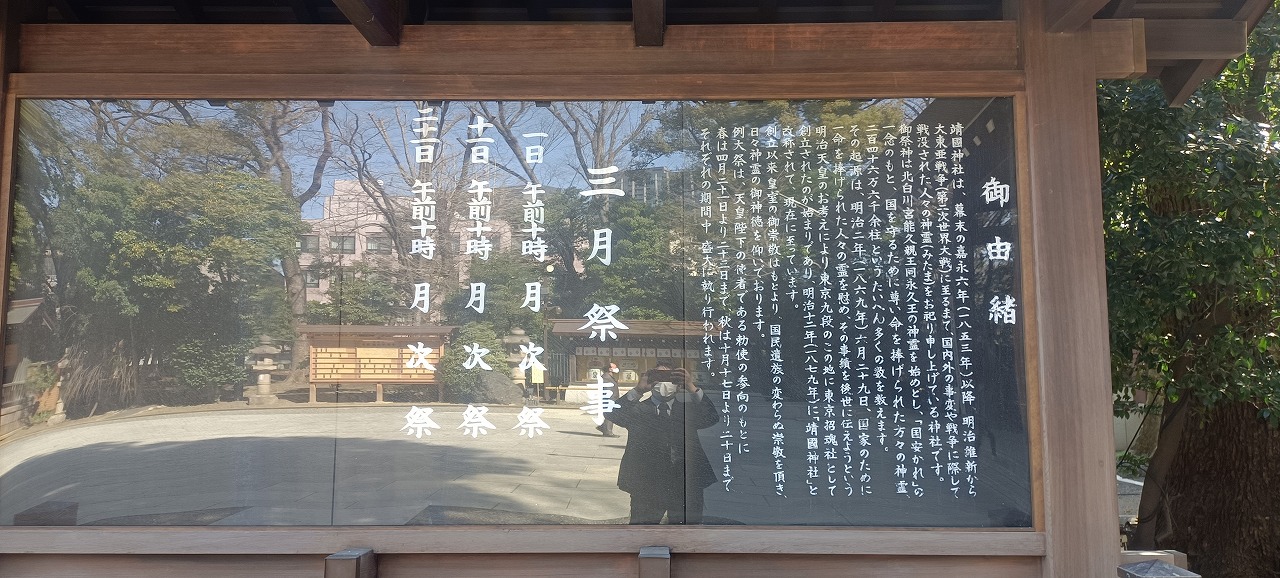 御由緒
靖國神社は、幕末の嘉永六年(一八五三年)以降、明治維新から
大東亜戦争(第二次世界大戦)に至るまで、国内外の事変や戦争に際して、
戦没された人々の神霊(みたま)をお祀り申し上げている神社です。
御祭神は北白川宮能久親王同永久王の神霊を始めとし、「国安かれ」の
一念のもと、国を守るために尊い命を捧げられた方々の神霊
二百四十六万六千余柱というたいへん多くの数を数えます。
その起源は、明治二年(一八六九年)六月二十九日、国家のために
一命を捧げられた人々の霊を慰め、その事績を後世に伝えようという
明治天皇のお考えにより東京九段のこの地に東京招魂社として
創立されたのが始まりであり、明治十二年(一八七九年)に「靖國神社」と
改称されて、現在に至っています。
創立以来皇室の御崇敬はもとより、国民遺族の変わらぬ崇敬を頂き、
日々神霊の御神徳を仰いでおります。
例大祭は、天皇陛下の使者である勅使の参向のもとに
春は四月二十一日より二十三日まで、秋は十月十七日より二十日まで
それぞれの期間中、盛大に執り行われます。
三月祭事
一日 午前十時 月次祭
十一日 午前十時 月次祭
二十一日 午前十時 月次祭